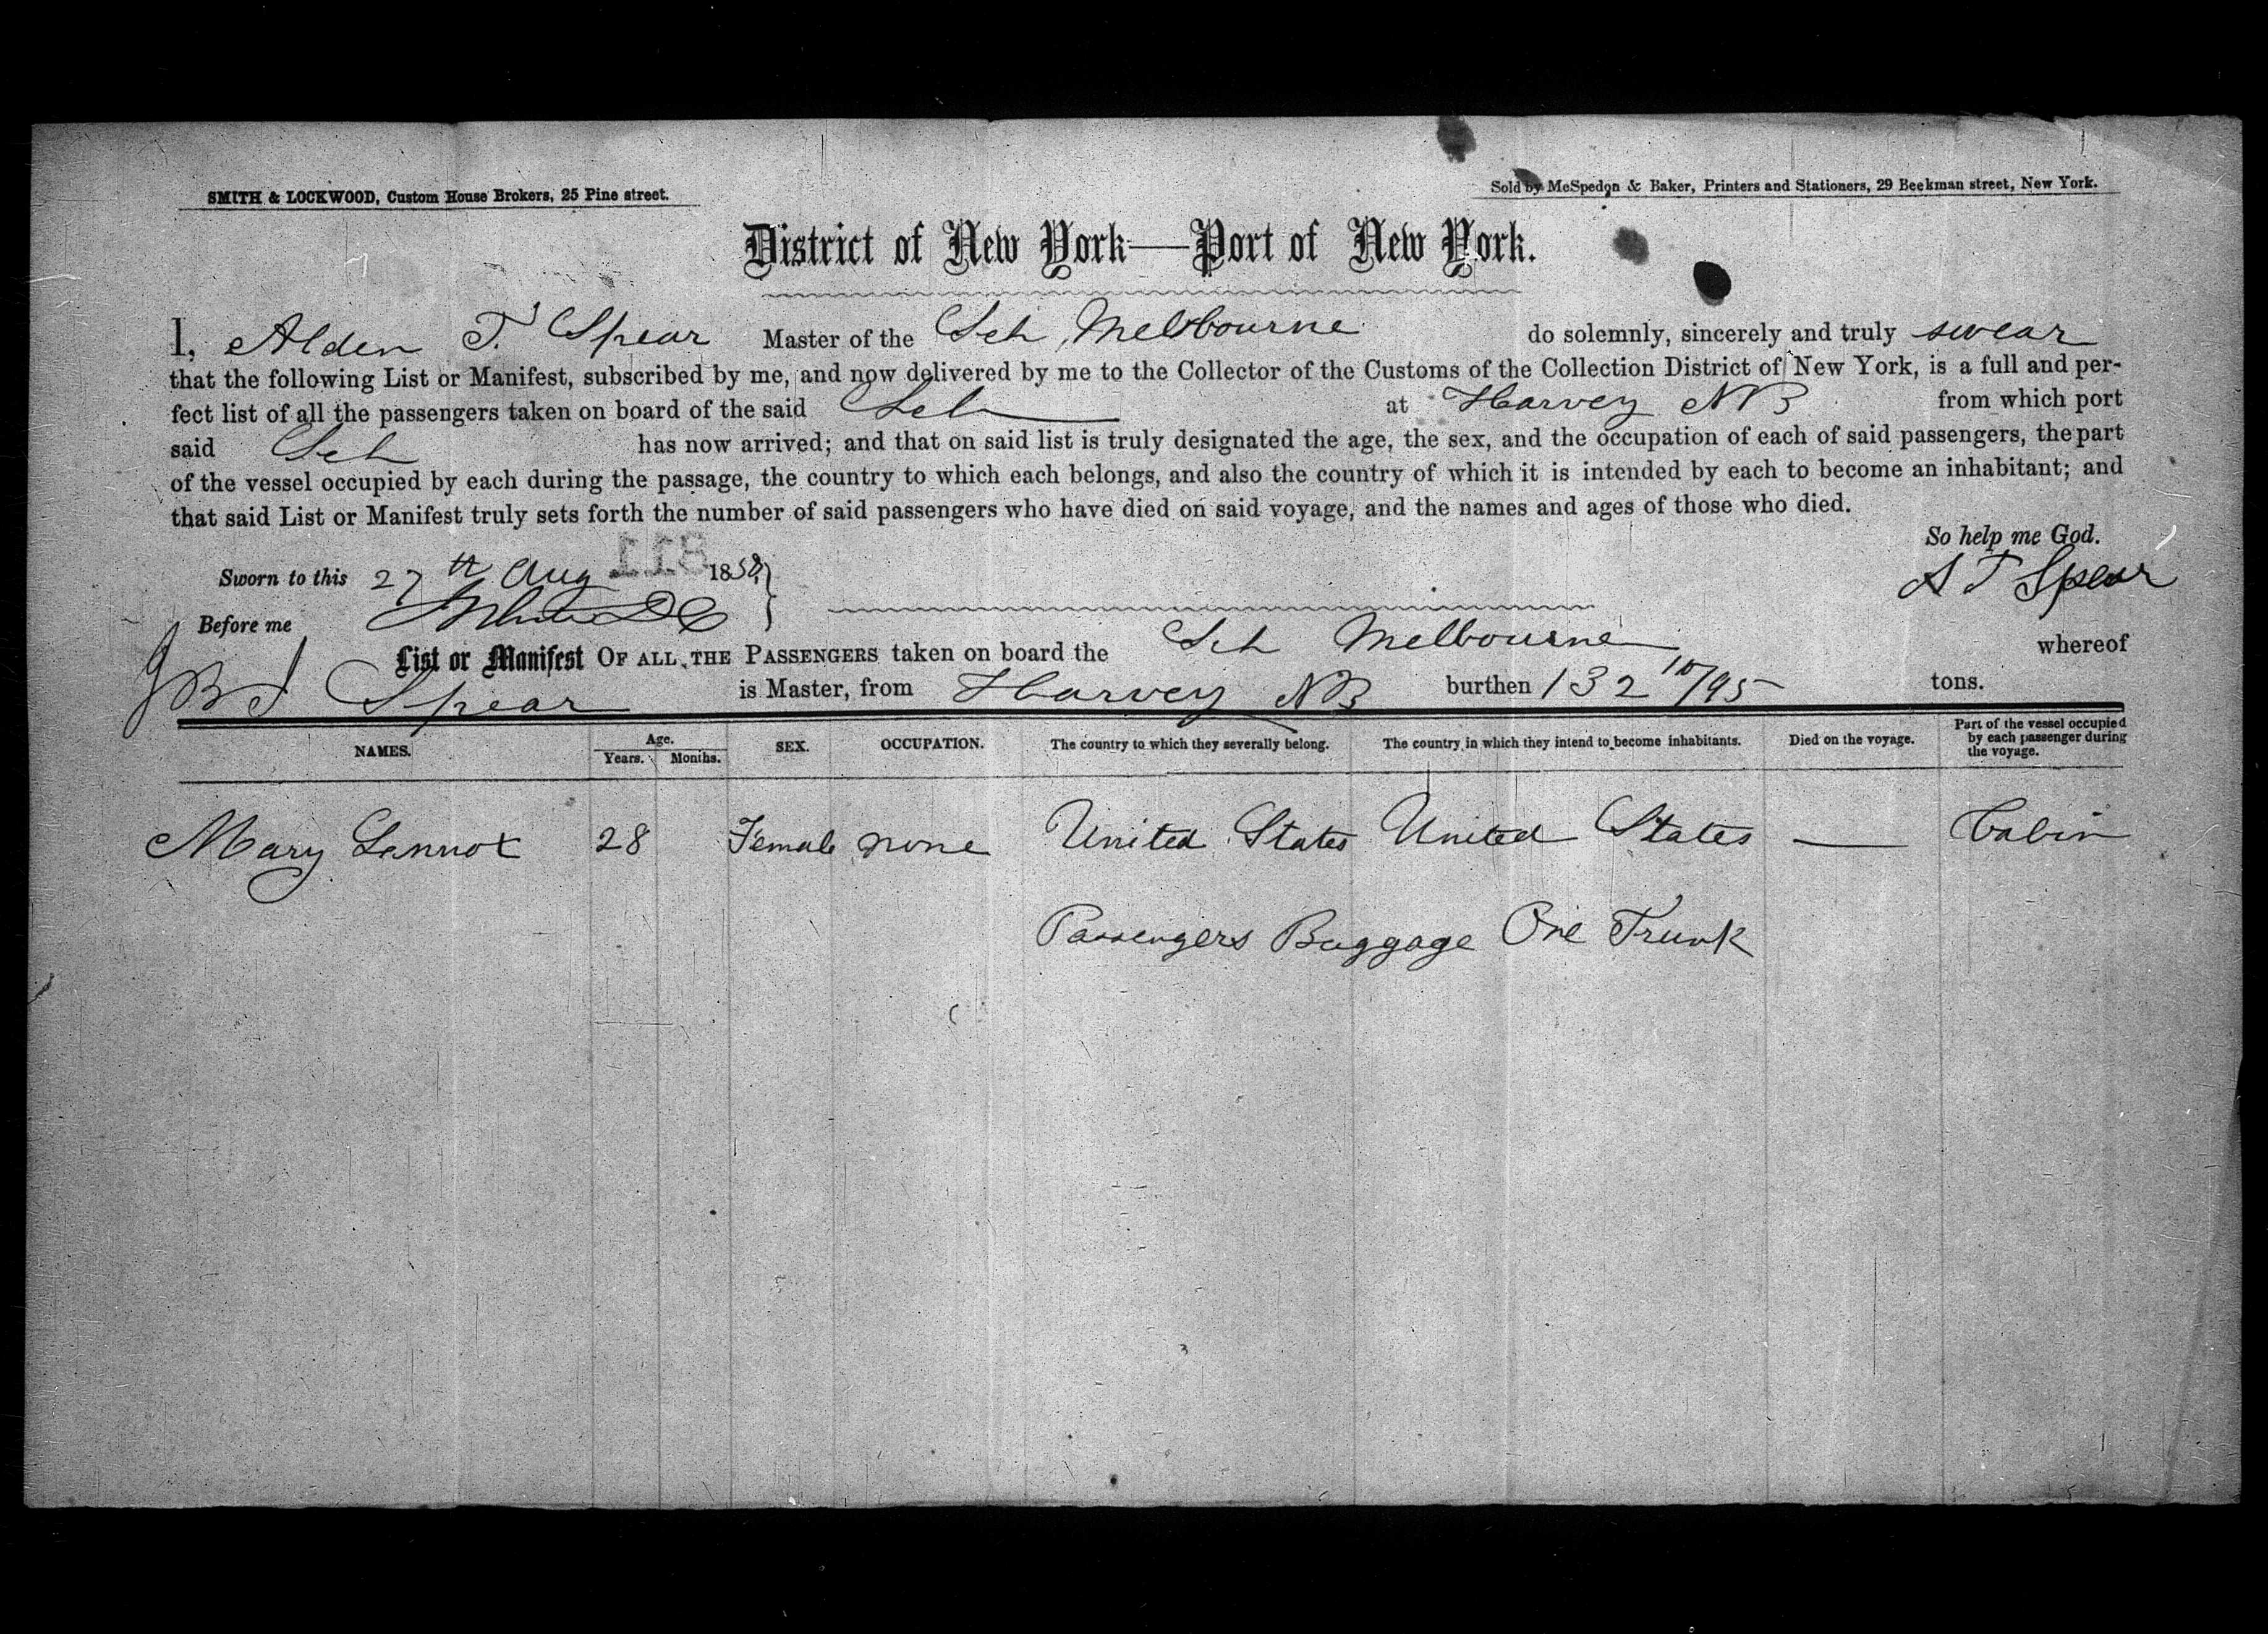 SMITH & LOCKWOOD, Custom House Brokers, 25 Pine street.
Sold by McSpedon & Baker, Printers and Stationers, 29 Beekman street, New York.
District of New York—Port of New York.
I, Alden T. Spear Master of the Sch Melbourne do solemnly, sincerely and truly swear
that the following List or Manifest, subscribed by me, and now delivered by me to the Collector of the Customs of the Collection District of New York, is a full and per-
fect list of all the passengers taken on board of the said Sch at Harvey NB from which port
said Sch has now arrived; and that on said list is truly designated the age, the sex, and the occupation of each of said passengers, the part
of the vessel occupied by each during the passage, the country to which each belongs, and also the country of which it is intended by each to become an inhabitant; and
that said List or Manifest truly sets forth the number of said passengers who have died on said voyage, and the names and ages of those who died.
So help me God.
811
Sworn to this 27th Aug 185
A T Spear
Before me
List or Manifest OF ALL THE PASSENGERS taken on board the Sch Melbourne whereof
Spear is Master, from Harvey NB burthen 132 10/95 tons.
NAMES. Age. Years. Months. SEX. OCCUPATION. The country to which they severally belong. The country in which they intend to become inhabitants. Died on the voyage. Part of the vessel occupied by each passenger during the voyage.
Mary Lennox 28 Female none United States United States — Cabin
Passengers Baggage One Trunk